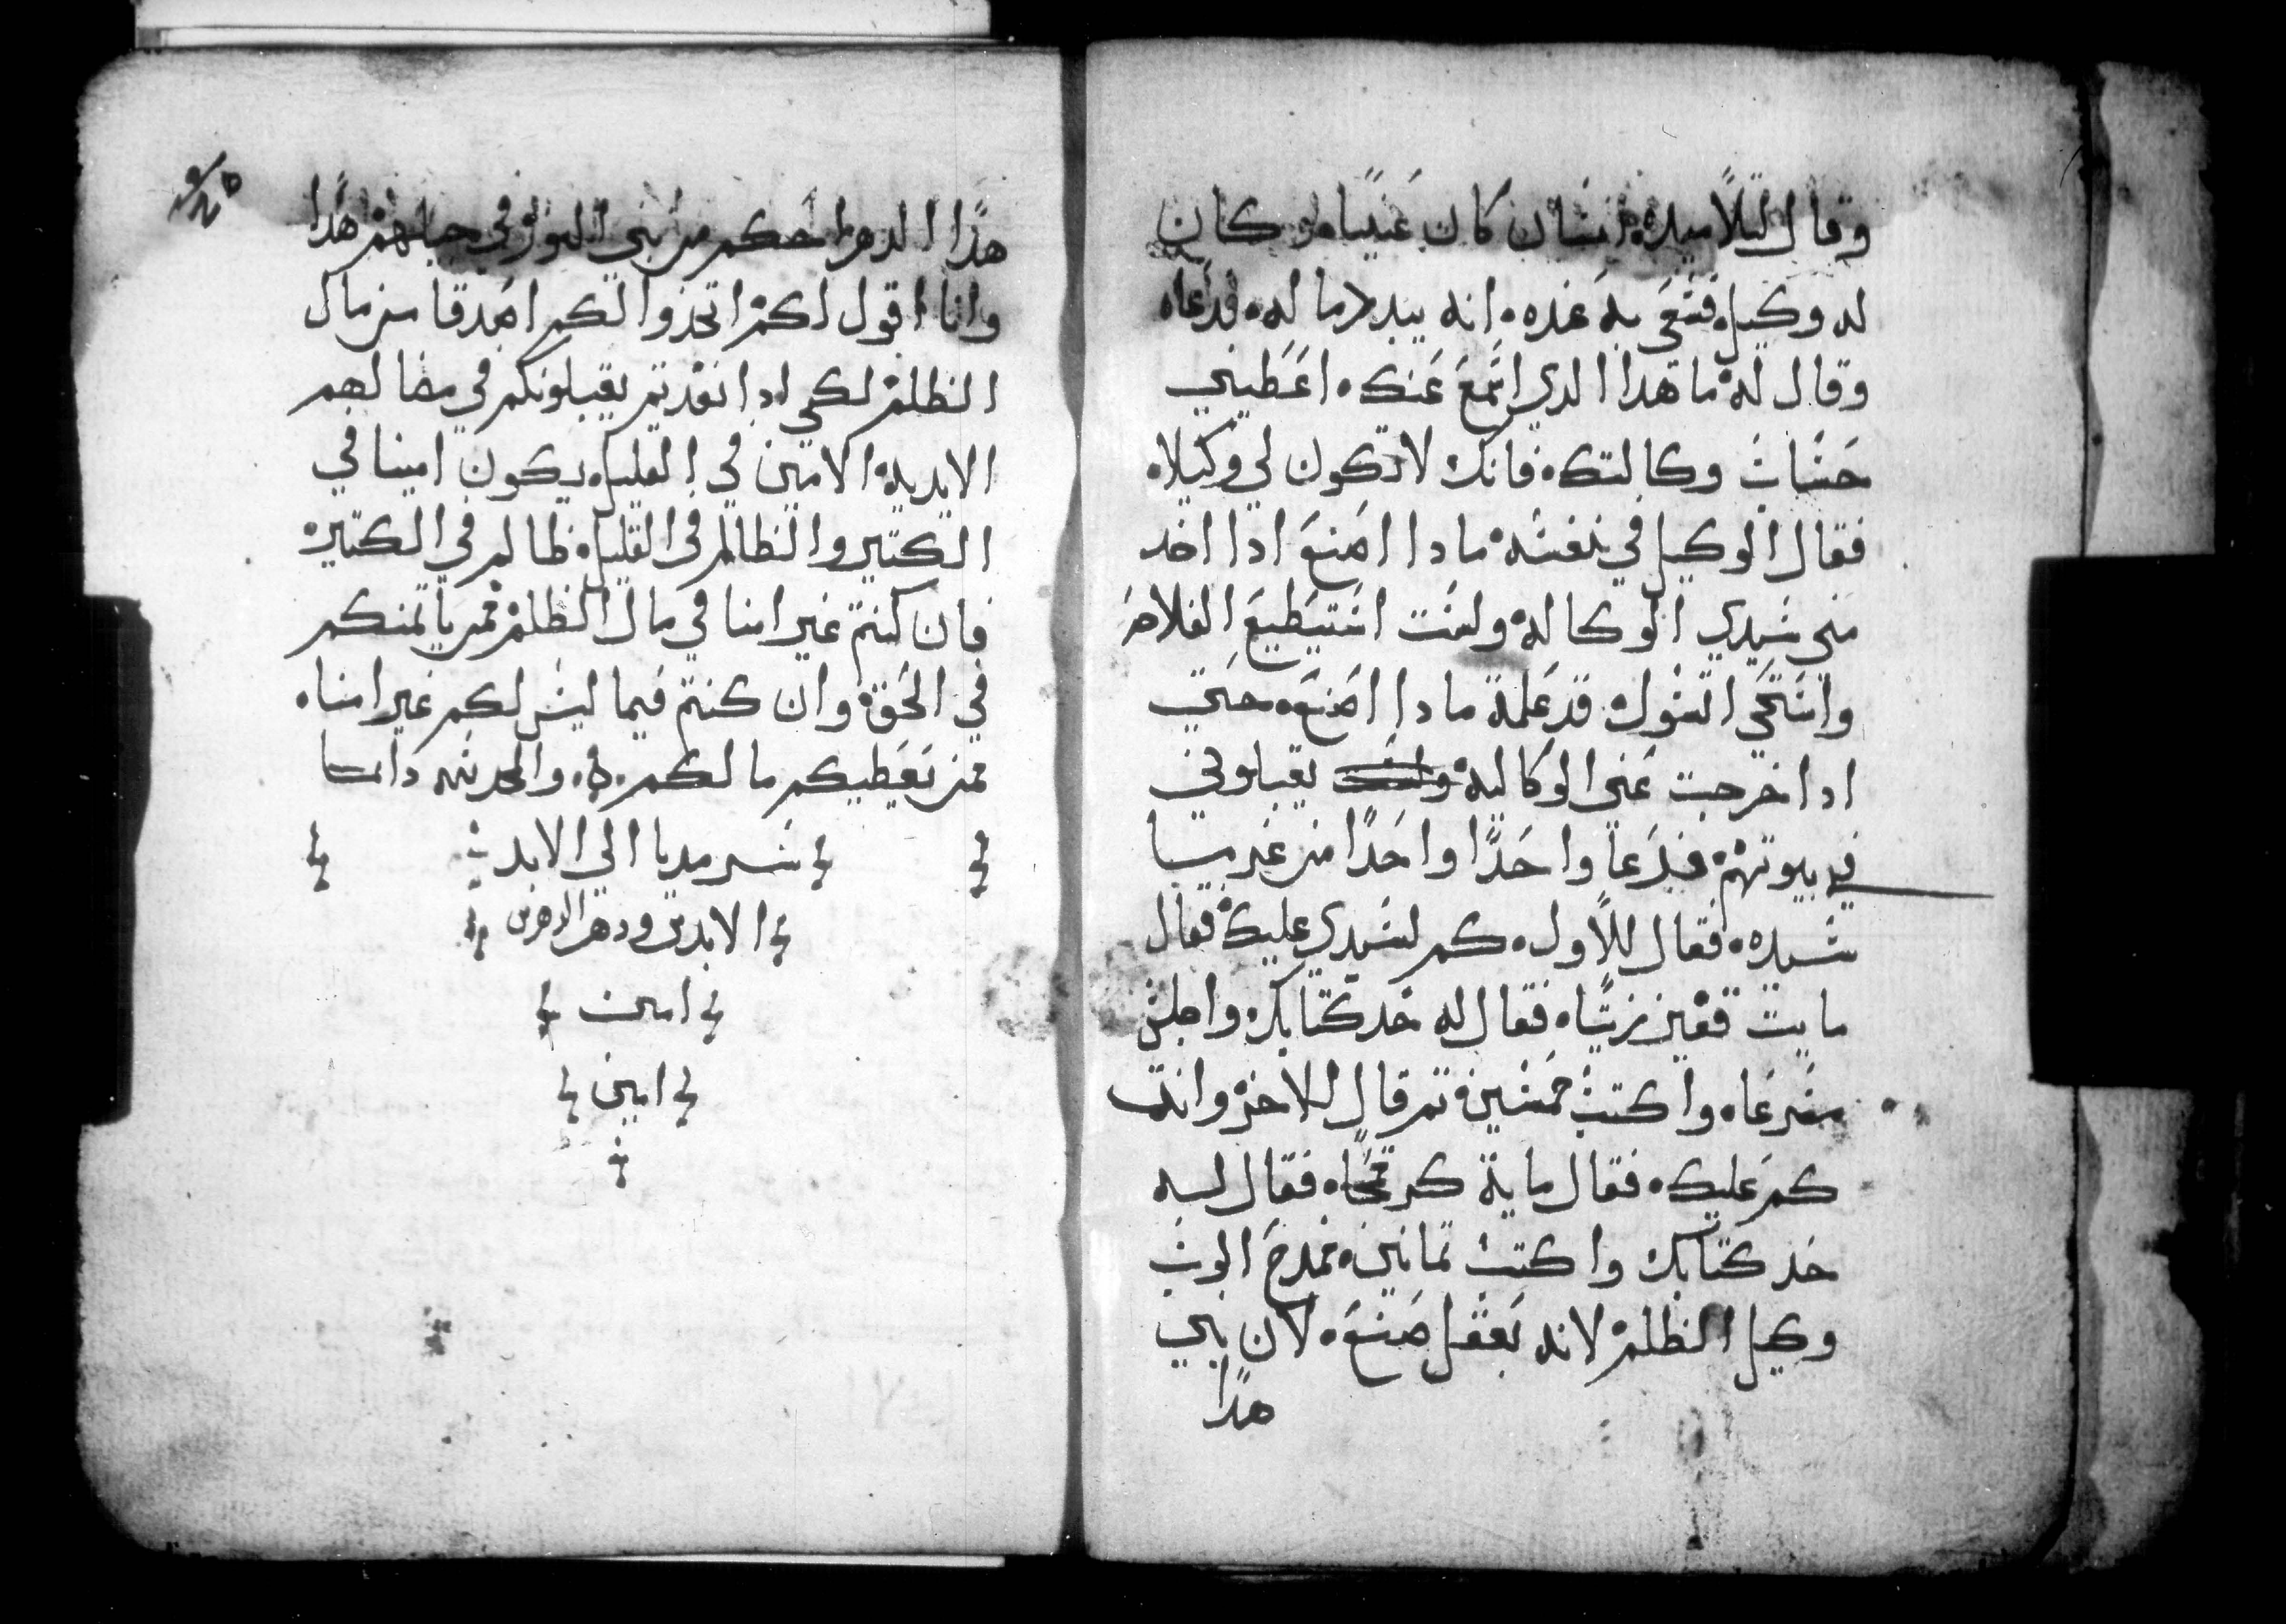 وقال لتلاميده انسان كان غنيا وكان
له وكيل فسعي به عنده انه يبدد ماله فدعاه
وقال له ما هدا الدي اسمع عنك اعطيني
حساب وكالتك فانك لا تكون لي وكيلا
فقال الوكيل في نفسه مادا اصنع ادا اخد
مني سيدي الوكاله ولست استيطيع الفلاحه
واستحي اتسول قد علمة مادا اصنع حتي
ادا خرجت عني الوكاليه يقبلوني
في بيوتهم فدعا واحدا واحدا من غرميا
سيده فقال للاول كم لسيدي عليك فقال
مايت قفيز زيتا فقال له خد كتابك واجلس
مسرعا واكتب خمسين تم قال للاخر وانت
كم عليك فقال ماية كر قمحا فقال له
خد كتابك واكتب تمانين فمدح الرب
وكيل الظلم لانه بعقل صنع لان بني
هدا
هدا الدهر احكم من بني النور في جيلهم هدا
وانا اقول لكم اتخدوا لكم اصدقا من مال
الظلم لكي ادا نفدتم يقبلونكم في مضالهم
الابديه الامين في القليل يكون امينا في
الكتير والظالم في القليل ظالم في الكتير
فان كنتم غير امنا في مال الظلم فمن ياتمنكم
في الحق وان كنتم فيما ليس لكم غير امنا
فمن يعطيكم مالكم والمجد لله دائما
سرمديا الي الابد
الابدين ودهر الدهرين
امين
امين